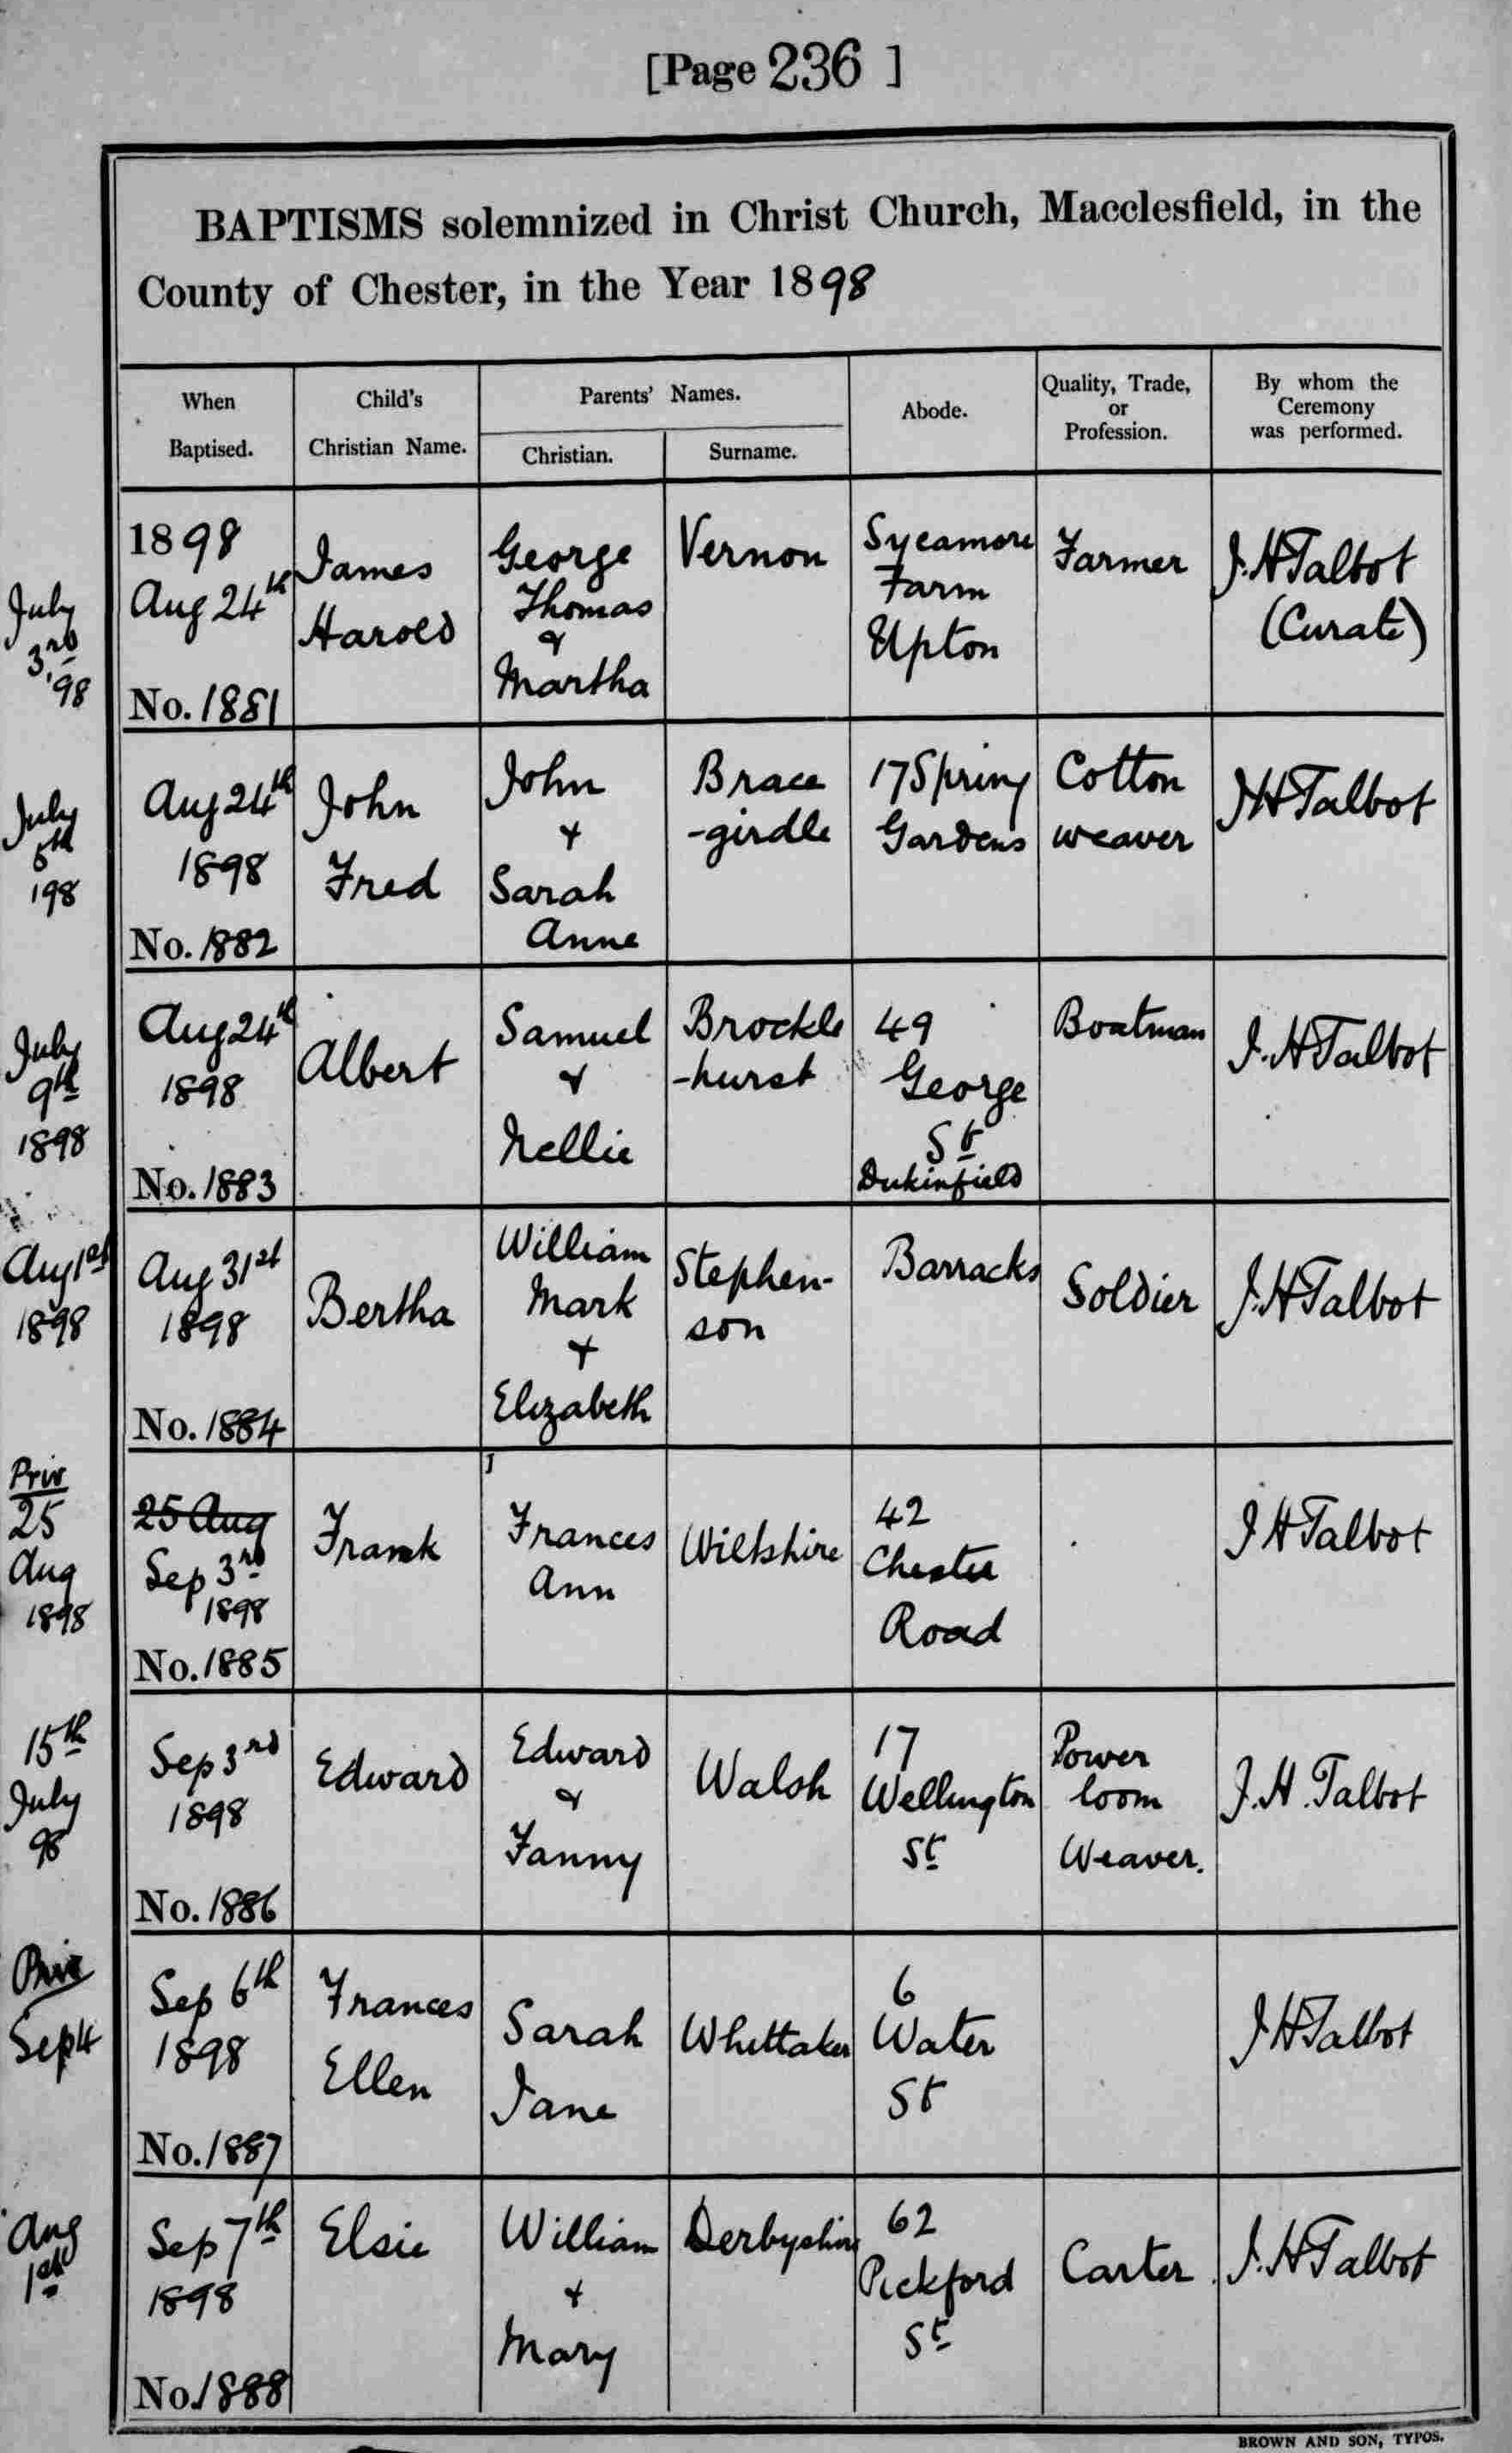 [Page 236 ]
BAPTISMS solemnized in Christ Church, Macclesfield, in the
County of Chester, in the Year 1898
When
Baptised.
Child's
Christian Name.
Parents' Names.
Christian.
Surname.
Abode.
Quality, Trade,
or
Profession.
By whom the
Ceremony
was performed.
July
3rd
'98
1898
Aug 24th
No. 1881
James
Harold
George
Thomas
&
Martha
Vernon
Sycamore
Farm
Upton
Farmer
J. H Talbot
(Curate)
July
'98
Aug 24th
1898
No. 1882
John
Fred
John
+
Sarah
Anne
Brace
-girdle
17 Spring
Gardens
Cotton
weaver
J H Talbot
July
9th
1898
Aug 24th
1898
No. 1883
Albert
Samuel
&
Nellie
Brockle
-hurst
49
George
St
Dukinfield
Boatman
J. H Talbot
Aug 1st
1898
Aug 31st
1898
No. 1884
Bertha
William
Mark
+
Elizabeth
Stephen-
son
Barracks
Soldier
J. H Talbot
Priv
25
Aug
1898
25 Aug
Sep 3rd
1898
No. 1885
Frank
Frances
Ann
Wiltshire
42
Chester
Road
J H Talbot
15th
July
98
Sep 3rd
1898
No. 1886
Edward
Edward
&
Fanny
Walsh
17
Wellington
St
Power
loom
Weaver.
J. H. Talbot
Priv
Sep 4
Sep 6th
1898
No. 1887
Frances
Ellen
Sarah
Jane
Whittaker
6
Water
St
J H Talbot
Aug
1st
Sep 7th
1898
No. 1888
Elsie
William
+
Mary
Derbyshire
62
Pickford
St
Carter
J. H Talbot
BROWN AND SON, TYPOS.